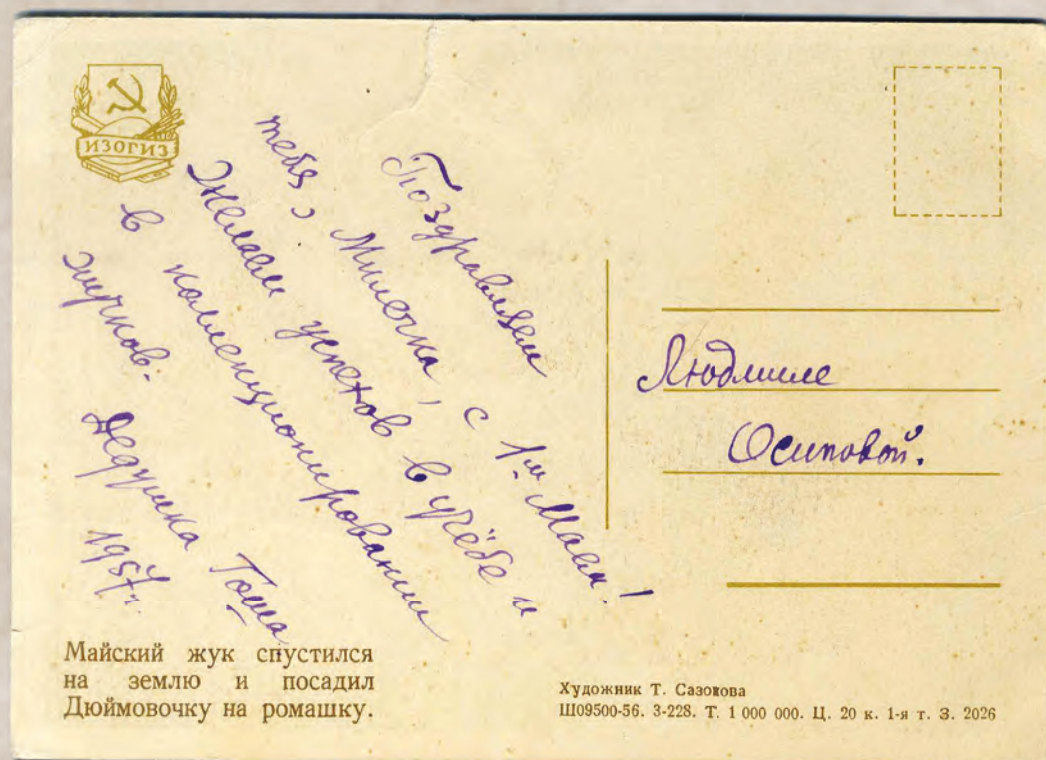 ИЗОГИЗ
Поздравляем
тебя, Милечка, с 1м Мая!
Желаем успехов в учёбе и
в коллекционировании
жучков.
Дедушка Гоша
1957г.
Людмиле
Осиповой.
Майский жук спустился
на землю и посадил
Дюймовочку на ромашку.
Художник Т. Сазонова
Ш09500-56. 3-228. Т. 1 000 000. Ц. 20 к. 1-я т. З. 2026